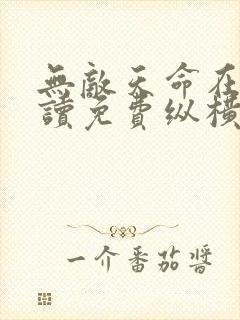 無敵天命在
讀免費纵橫
一介番茄醬